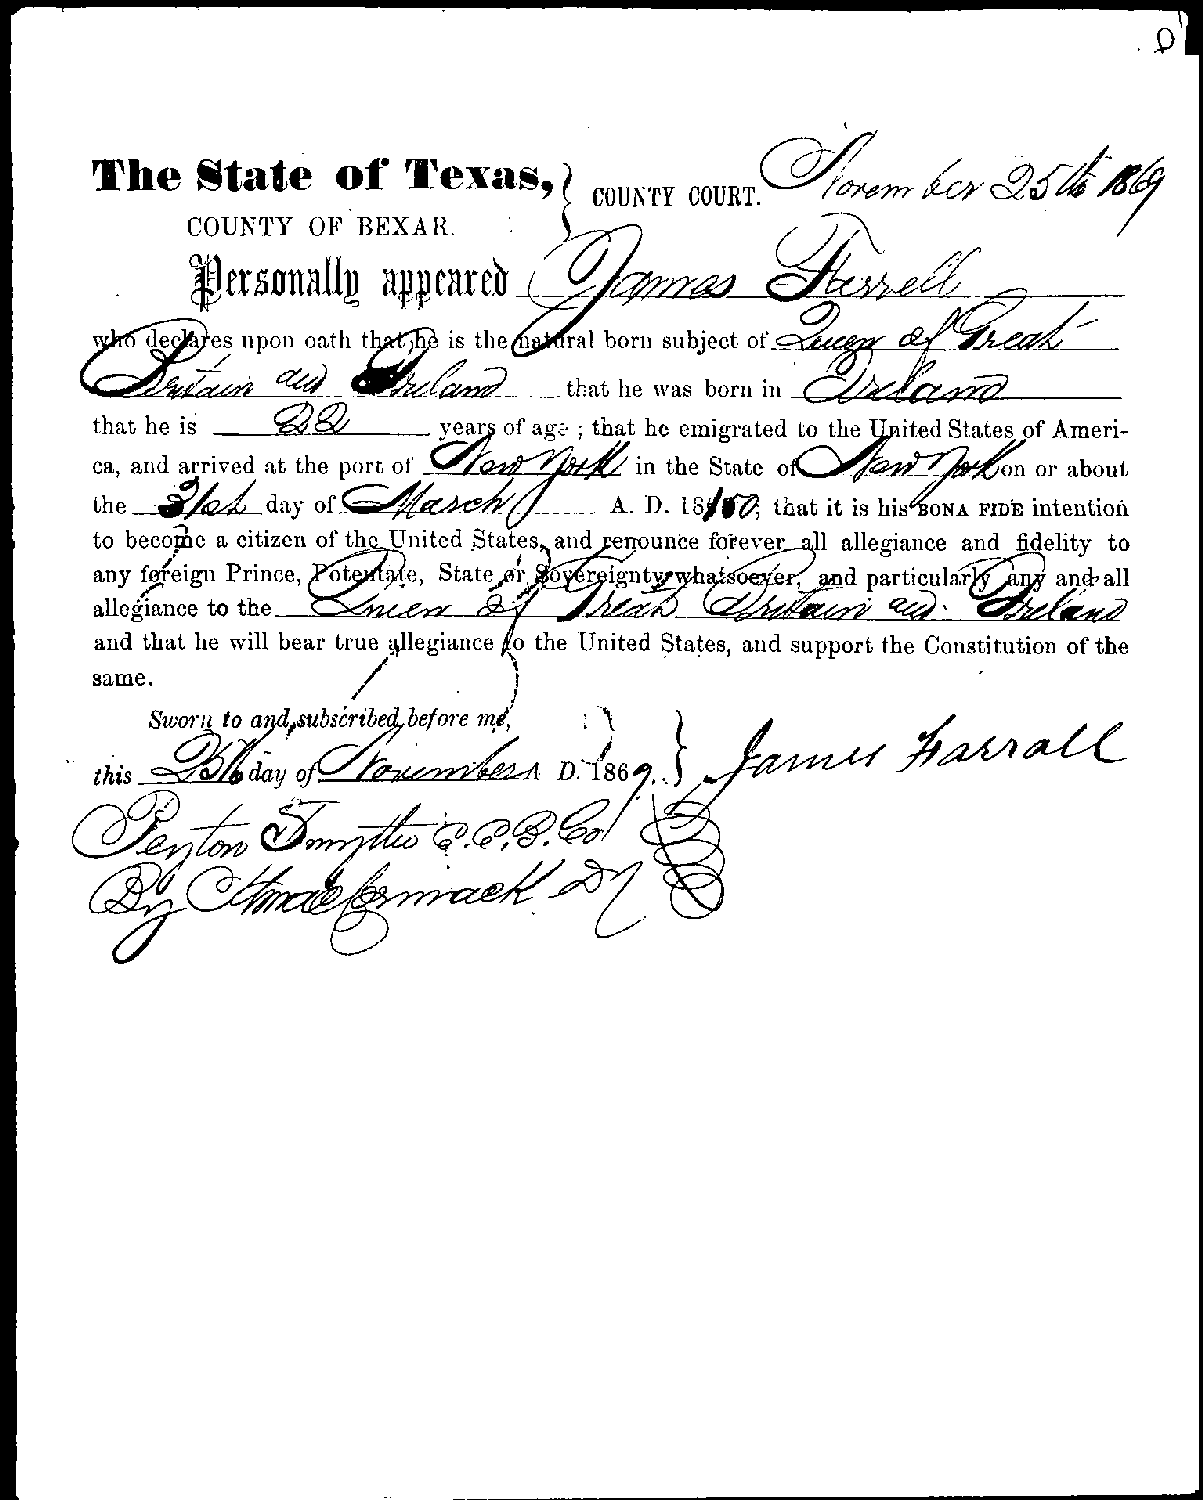 The State of Texas, } COUNTY COURT. November 25th 1869
COUNTY OF BEXAR.
Personally appeared James Farrell
who declares upon oath that he is the natural born subject of Queen of Great
Britain and Ireland that he was born in Ireland
that he is 22 years of age ; that he emigrated to the United States of Ameri-
ca, and arrived at the port of New York in the State of New York on or about
the 31st day of March A. D. 1850, that it is his BONA FIDE intention
to become a citizen of the United States, and renounce forever all allegiance and fidelity to
any foreign Prince, Potentate, State or Sovereignty whatsoever, and particularly any and all
allegiance to the Queen of Great Britain and Ireland
and that he will bear true allegiance to the United States, and support the Constitution of the
same.
Sworn to and subscribed before me,
this 25th day of November A D. 1869. } James Farrall
Peyton Smythe C.C.B.Co
By